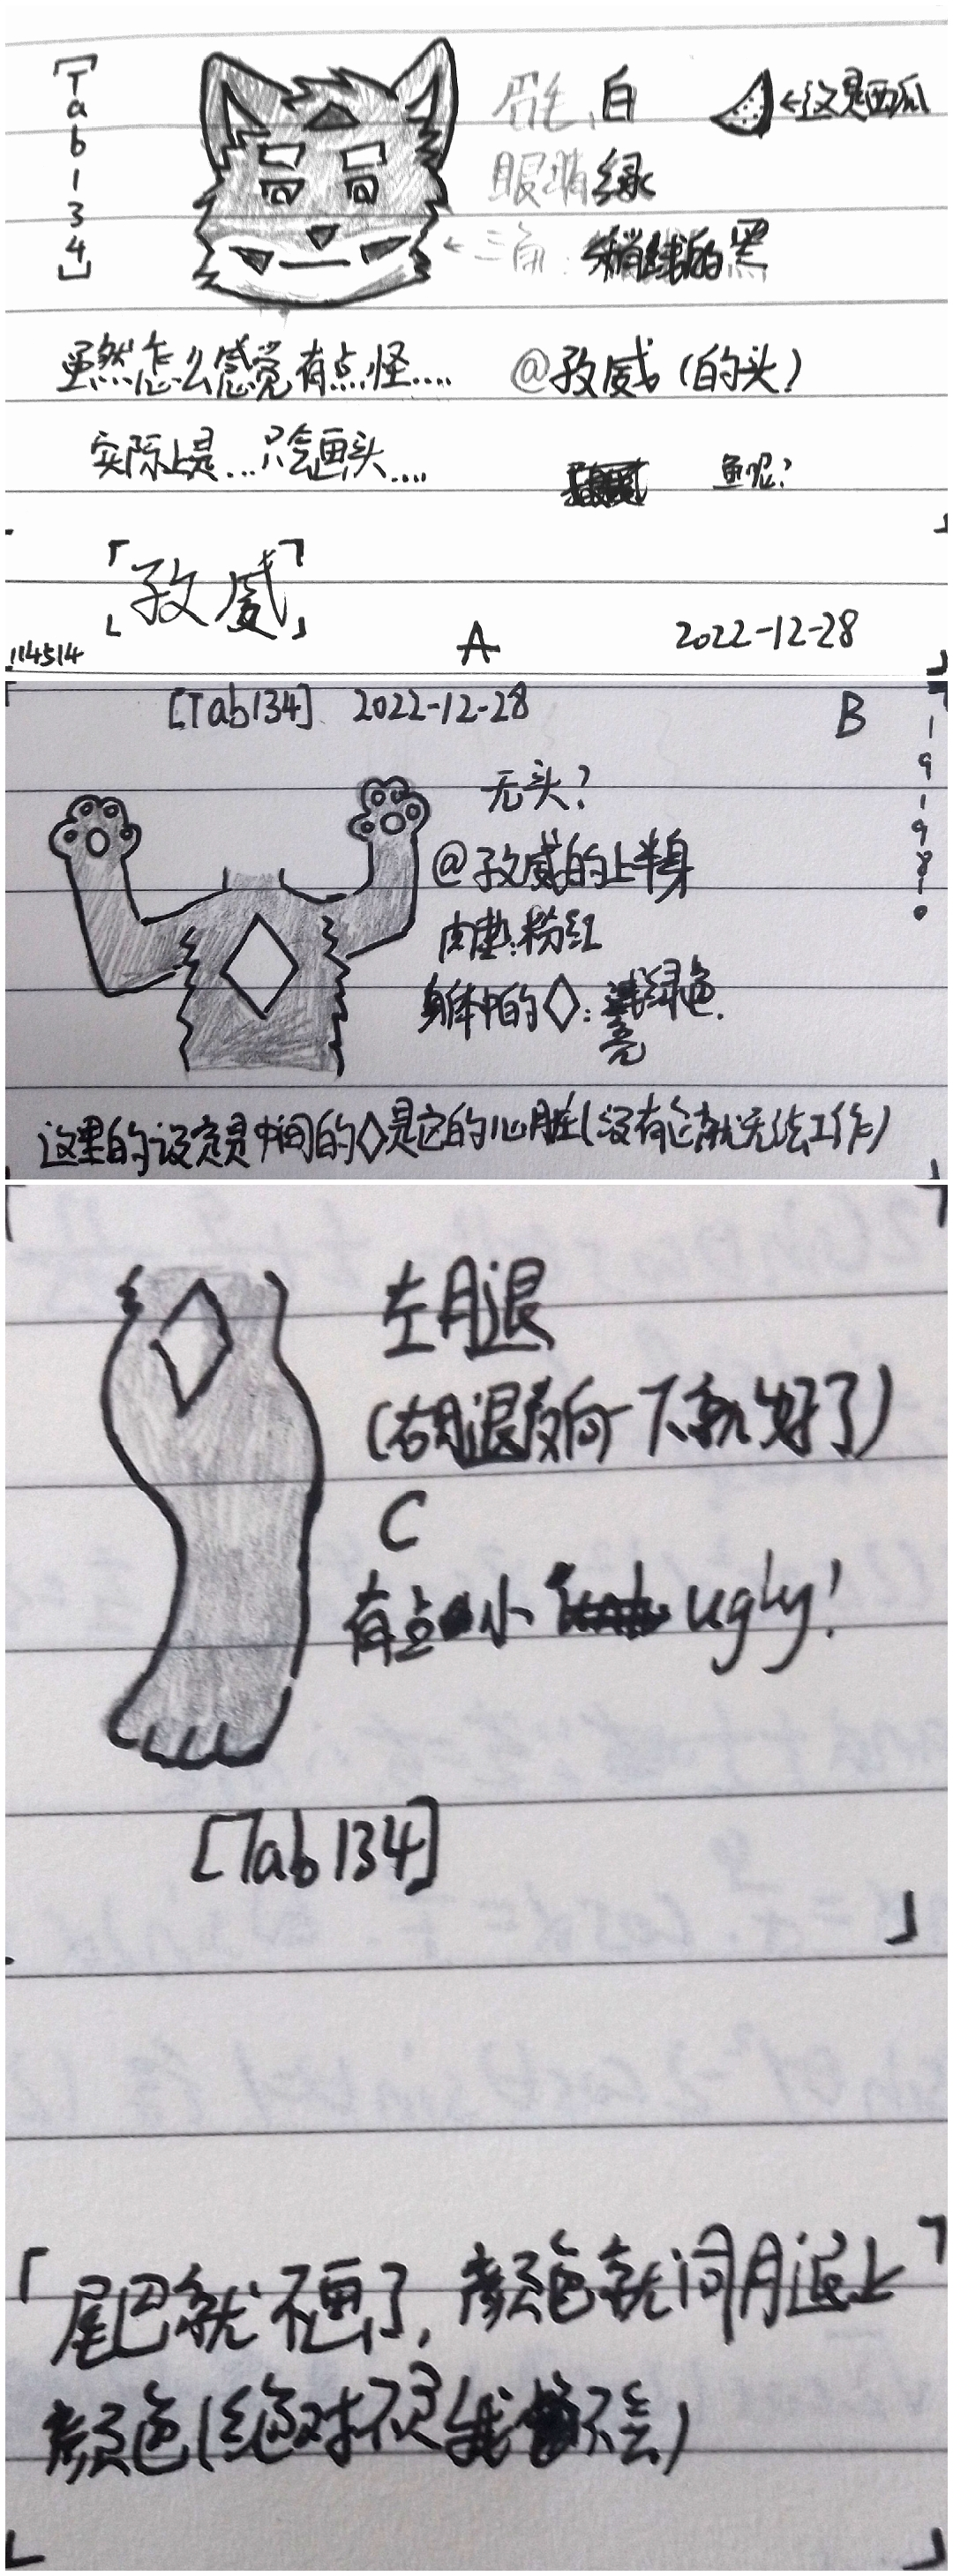 「Tab134」
眉毛:白
←这是西瓜
眼睛 绿
←三角:稍绿的黑
虽然怎么感觉有点怪....
@孜威(的头)
实际上是...只会画头....
鱼呢?
「孜威」
114514
A
2022-12-28
[Tab134] 2022-12-28
B
1919810
无头?
@孜威的上半身
肉垫:粉红
身体中的◇:亮绿色.
这里的设定是中间的◇是它的心脏(没有它就无法工作)
左腿
(右腿反向一下就好了)
C
有点小 ugly!
[Tab134]
「尾巴就不画了,颜色就同腿上」
颜色(绝对不是我不会)